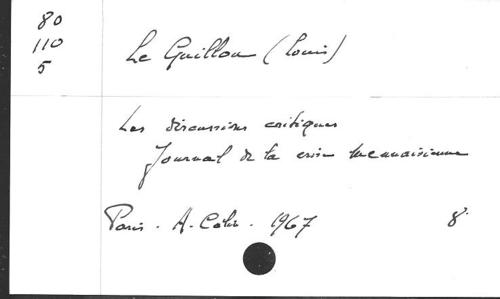 80
110
5
Le Guillou (Louis)
Les discussions critiques
Journal de la crise mennaisienne
Paris. A. Colin. 1967 8°